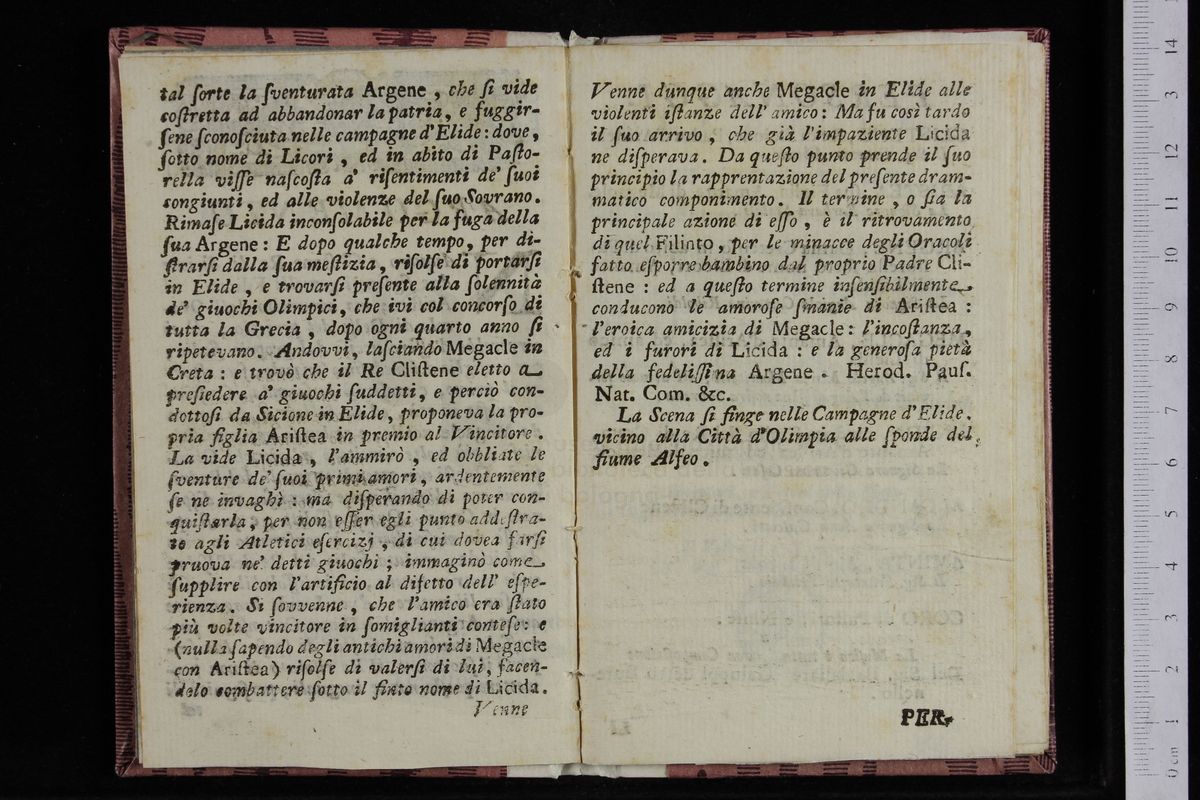 tal ſorte la ſventurata Argene , che ſi vide
coſtretta ad abbandonar la patria, e fuggir-
ſene ſconoſciuta nelle campagne d'Elide: dove,
ſotto nome di Licori , ed in abito di Paſto-
rella viſſe naſcoſta a' riſentimenti de' ſuoi
congiunti , ed alle violenze del ſuo Sovrano.
Rimaſe Licida inconſolabile per la fuga della
ſua Argene: E dopo qualche tempo, per di-
ſtrarſi dalla ſua meſtizia, riſolſe di portarſi
in Elide , e trovarſi preſente alla ſolennità
de' giuochi Olimpici, che ivi col concorſo di
tutta la Grecia , dopo ogni quarto anno ſi
ripetevano. Andovvi, laſciando Megacle in
Creta : e trovò che il Re Cliſtene eletto a
preſiedere a' giuochi ſuddetti, e perciò con-
dottoſi da Sicione in Elide, proponeva la pro-
pria figlia Ariſtea in premio al Vincitore .
La vide Licida , l'ammirò , ed obbliate le
ſventure de' ſuoi primi amori, ardentemente
ſe ne invaghì : ma diſperando di poter con-
quiſtarla, per non eſſer egli punto addeſtra-
to agli Atletici eſercizj , di cui dovea farſi
pruova ne' detti giuochi ; immaginò come
ſupplire con l'artificio al difetto dell' eſpe-
rienza. Si ſovvenne , che l'amico era ſtato
più volte vincitore in ſomiglianti conteſe: e
(nulla ſapendo degli antichi amori di Megacle
con Ariſtea) riſolſe di valerſi di lui, facen-
dolo combattere ſotto il finto nome di Licida.
Venne
Venne dunque anche Megacle in Elide alle
violenti iſtanze dell' amico: Ma fu così tardo
il ſuo arrivo , che già l'impaziente Licida
ne diſperava. Da queſto punto prende il ſuo
principio la rapprentazione del preſente dram-
matico componimento. Il termine , o ſia la
principale azione di eſſo , è il ritrovamento
di quel Filinto, per le minacce degli Oracoli
fatto eſporre bambino dal proprio Padre Cli-
ſtene : ed a queſto termine inſenſibilmente
conducono le amoroſe ſmanie di Ariſtea :
l'eroica amicizia di Megacle: l'incoſtanza,
ed i furori di Licida : e la generoſa pietà
della fedeliſſina Argene . Herod. Pauſ.
Nat. Com. &c.
La Scena ſi finge nelle Campagne d'Elide,
vicino alla Città d'Olimpia alle ſponde del
fiume Alfeo .
PER-
0 cm 1 2 3 4 5 6 7 8 9 10 11 12 3 14